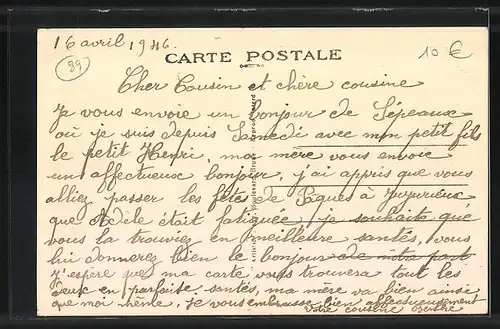 16 avril 1946.
10 €
89
CARTE POSTALE
Cher Cousin et chère cousine
Je vous envoie un bonjour de Sépeaux
où je suis depuis Samedi avec mon petit fils
le petit Henri, ma mère vous envoie
un affectueux bonjour, j'ai appris que vous
alliez passer les fêtes de Pâques à
que Adèle était fatiguée, je souhaite que
vous la trouviez en meilleure santés, vous
lui donnerez bien le bonjour de notre part
J'espère que ma carte vous trouvera tout les
deux en parfaite santés, ma mère va bien ainsi
que moi même, je vous embrasse bien affectueusement
Votre cousine Berthe